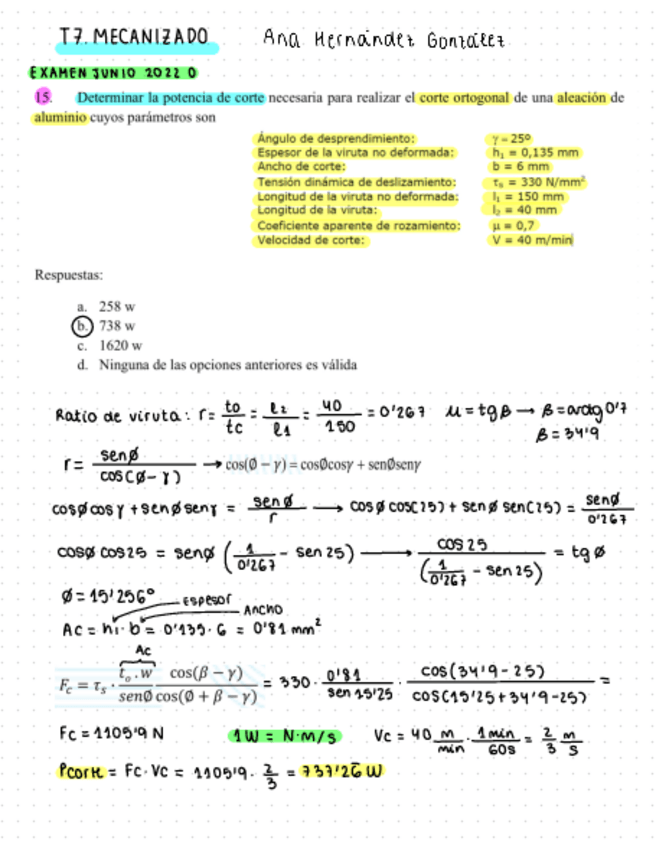 T7. MECANIZADO Ana Hernández González
EXAMEN JUNIO 2022 O
15. Determinar la potencia de corte necesaria para realizar el corte ortogonal de una aleación de
aluminio cuyos parámetros son
Ángulo de desprendimiento: γ = 25º
Espesor de la viruta no deformada: h₁ = 0,135 mm
Ancho de corte: b = 6 mm
Tensión dinámica de deslizamiento: τₛ = 330 N/mm²
Longitud de la viruta no deformada: l₁ = 150 mm
Longitud de la viruta: l₂ = 40 mm
Coeficiente aparente de rozamiento: μ = 0,7
Velocidad de corte: V = 40 m/min
Respuestas:
a. 258 w
b. 738 w
c. 1620 w
d. Ninguna de las opciones anteriores es válida
Ratio de viruta: r = to/tc = l2/l1 = 40/150 = 0'267 μ = tgβ → β = arctg 0'7
β = 34'9
r = senØ / cos(Ø-γ) → cos(Ø − γ) = cosØcosγ + senØsenγ
cosØ cosγ + senØ senγ = senØ/r → cosØ cos(25) + senØ sen(25) = senØ/0'267
cosØ cos25 = senØ (1/0'267 - sen 25) → cos 25 / (1/0'267 - sen 25) = tgØ
Ø = 15'256° ESPESOR
ANCHO
Ac = h₁·b = 0'135·6 = 0'81 mm²
Ac
F_c = τₛ · t_o.w/senØ cos(β − γ)/cos(Ø + β − γ) = 330 · 0'81/sen 15'25 · cos(34'9-25)/cos(15'25+34'9-25) =
Fc = 1105'9 N 1W = N·m/s Vc = 40 m/min · 1min/60s = 2/3 m/s
Pcorte = Fc·Vc = 1105'9 · 2/3 = 737'26 W